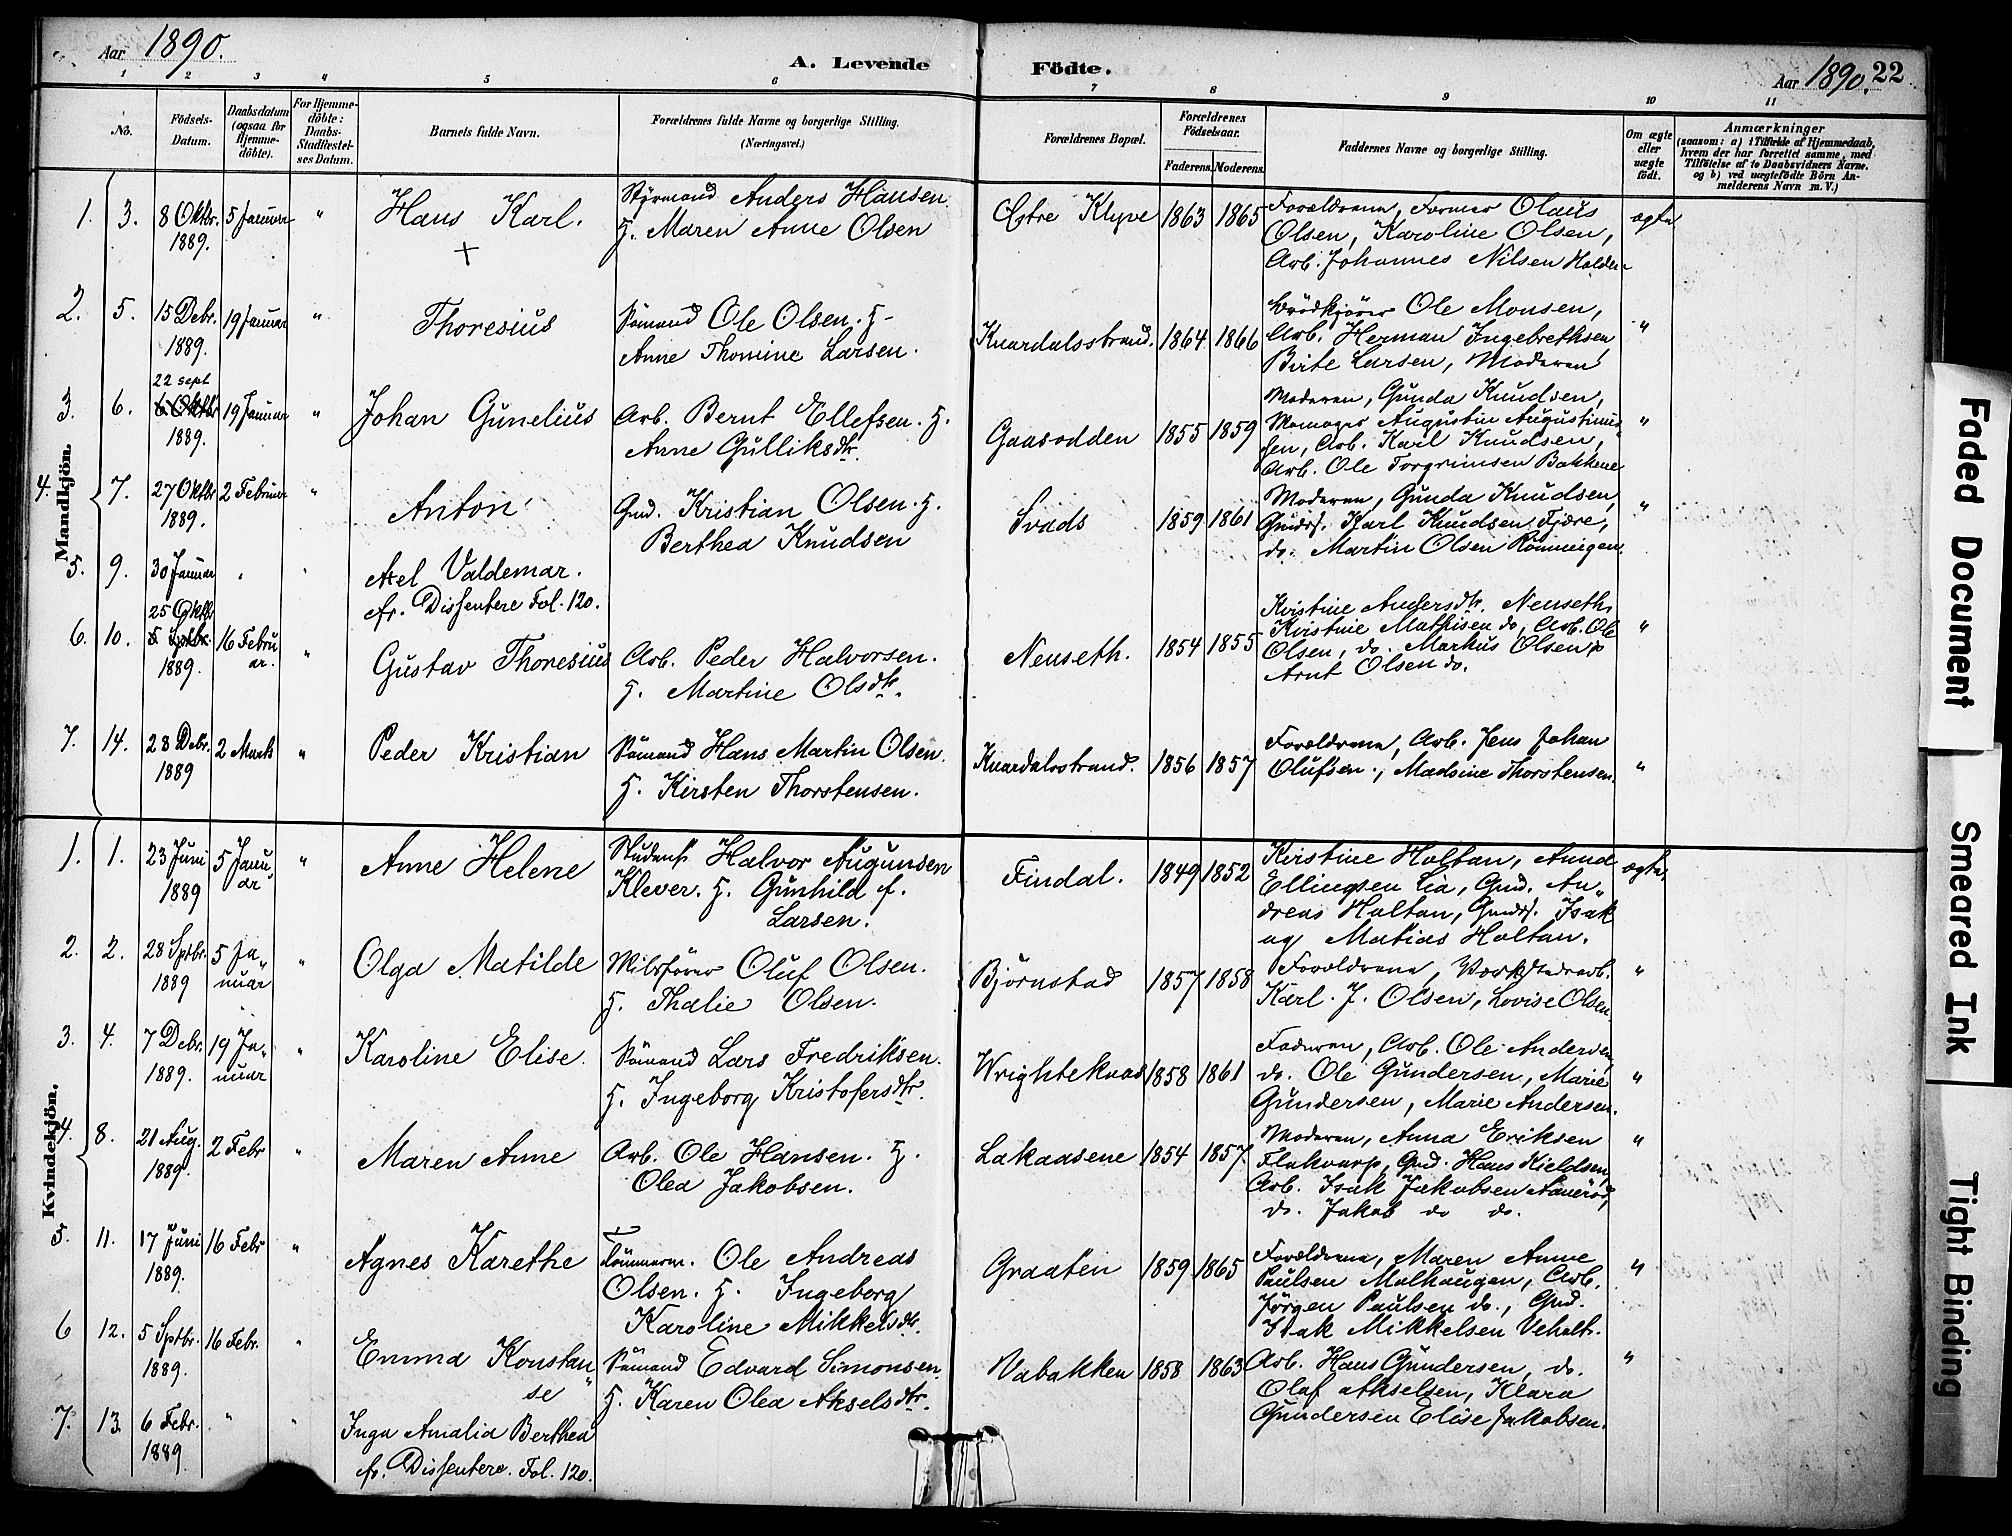 Aar 1890.
A. Levende Födte.
Aar 1890. 22
1 2 3 4 5 6 7 8 9 10 11
No.
Födsels-Datum.
Daabsdatum (ogsaa for Hjemme-döbte).
For Hjemme-döbte: Daabs-Stadfæstel-ses Datum.
Barnets fulde Navn.
Forældrenes fulde Navne og borgerlige Stilling. (Næringsvei.)
Forældrenes Bopæl.
Forældrenes Födselsaar.
Faderens. Moderens.
Faddernes Navne og borgerlige Stilling.
Om ægte eller uægte födt.
Anmærkninger
(saasom: a) i Tilfælde af Hjemmedaab,
hvem der har forrettet samme, med
Tilföielse af to Daabsvidners Navne.
og b) ved uægtefödte Börn An-
melderens Navn m. V.)
Mandkjön.
1. 3. 8 Oktbr. 1889. 5 Januar " Hans Karl. +
Styrmand Anders Hansen
H. Maren Anne Olsen
Östre Klyve 1863 1865
Forældrene, Former Olaus
Olsen, Karoline Olsen,
Arb. Johannes Nilsen Holden
ægte
2. 5. 15 Debr. 1889. 19 Januar " Thoresius
Sömand Ole Olsen. H.
Anne Thomine Larsen.
Knardalsstrand. 1864 1866
Brödkjörer Ole Monsen,
Arb. Herman Ingebrethsen
Birte Larsen, Moderen
"
3. 6. 22 sept 6 Oktbr 1889. 19 Januar " Johan Gunelius
Arb. Bernt Ellefsen. H.
Anne Gulliksdtr.
Gaasodden 1855 1859
Moderen, Gunda Knudsen,
Augustin Augustinus
sen, Arb. Karl Knudsen,
Arb. Ole Torgrimsen Bakkene
"
4. 7. 27 Oktbr 1889. 2 Februar " Anton
Gmd. Kristian Olsen. H.
Berthea Knudsen
Svads 1859 1861
Moderen, Gunda Knudsen,
Gmds. Karl Knudsen Fjære,
do. Martin Olsen Rönningen
"
5. 9. 30 Januar " " Axel Valdemar.
fr. Dissentere Fol. 120.
6. 10. 25 Oktbr 5 Sptbr. 1889. 16 Febru ar. " Gustav Thoresius
Arb. Peder Halvorsen.
H. Martine Olsdtr.
Nenseth. 1854 1855
Kristine Andersdtr. Nenseth,
Kristine Mathisen do, Arb. Ole
Olsen, do. Markus Olsen,
Arnt Olsen do.
"
7. 14. 28 Debr. 1889 2 Marts " Peder Kristian
Sömand Hans Martin Olsen.
H. Kirsten Thorstensen.
Knardalsstrand. 1856 1857
Forældrene, Arb. Jens Johan
Olufsen, Madsine Thorstensen.
"
Kvindekjön.
1. 1. 23 Juni 1889 5 Janu„ ar " Anne Helene
Student Halvor Augunsen
Klever. H. Gunhild f.
Larsen.
Findal. 1849 1852
Kristine Holtan, Anne
Ellingsen Lia, Gmd. An„
dreas Holtan, Gmds. Isak
og Matias Holtan.
ægte.
2. 2. 28 Sptbr. 1889 5 Ja„ nuar " Olga Matilde
Oluf Olsen.
H. Thalie Olsen.
Björnstad 1857 1858
Forældrene, Værkstedarb.
Karl. J. Olsen, Lovise Olsen
"
3. 4. 7 Debr. 1889. 19 Ja„ nuar " Karoline Elise.
Sömand Lars Fredriksen.
H. Ingeborg Kristofersdtr.
Wrightekaas 1858 1861
Faderen, Arb. Ole Andersen,
do. Ole Gundersen, Marie
Gundersen, Marie Andersen.
"
4. 8. 21 Aug. 1889. 2 Febr " Maren Anne
Arb. Ole Hansen. H.
Olea Jakobsen.
Lakaasene 1854 1857
Moderen, Anna Eriksen
Flakvarp, Gmd. Hans Kieldsen,
Arb. Isak Jakobsen Aaneröd,
do. Jakob do do.
"
5. 11. 17 Juni 1889. 16 Febr " Agnes Karethe
Tömmerm. Ole Andreas
Olsen. H. Ingeborg
Karoline Mikkelsdtr.
Graaten 1859 1865
Forældrene, Maren Anne
Paulsen Molhaugen, Arb.
Jörgen Paulsen do., Gmd.
Isak Mikkelsen Veholt.
"
6 12. 5 Sptbr. 1889. 16 Febr. " Emma Konstan„
se
Sömand Edvard Simonsen
H. Karen Olea Akselsdtr.
Vabakken 1858 1863
Arb. Hans Gundersen, do.
Olaf Akselsen, Klara
Gundersen Elise Jakobsen.
"
7. 13. 6 Febr. 1889 " " Inga Amalia Berthea
fr. Dissentere. Fol. 120.
Faded Document
Smeared Ink
Tight Binding